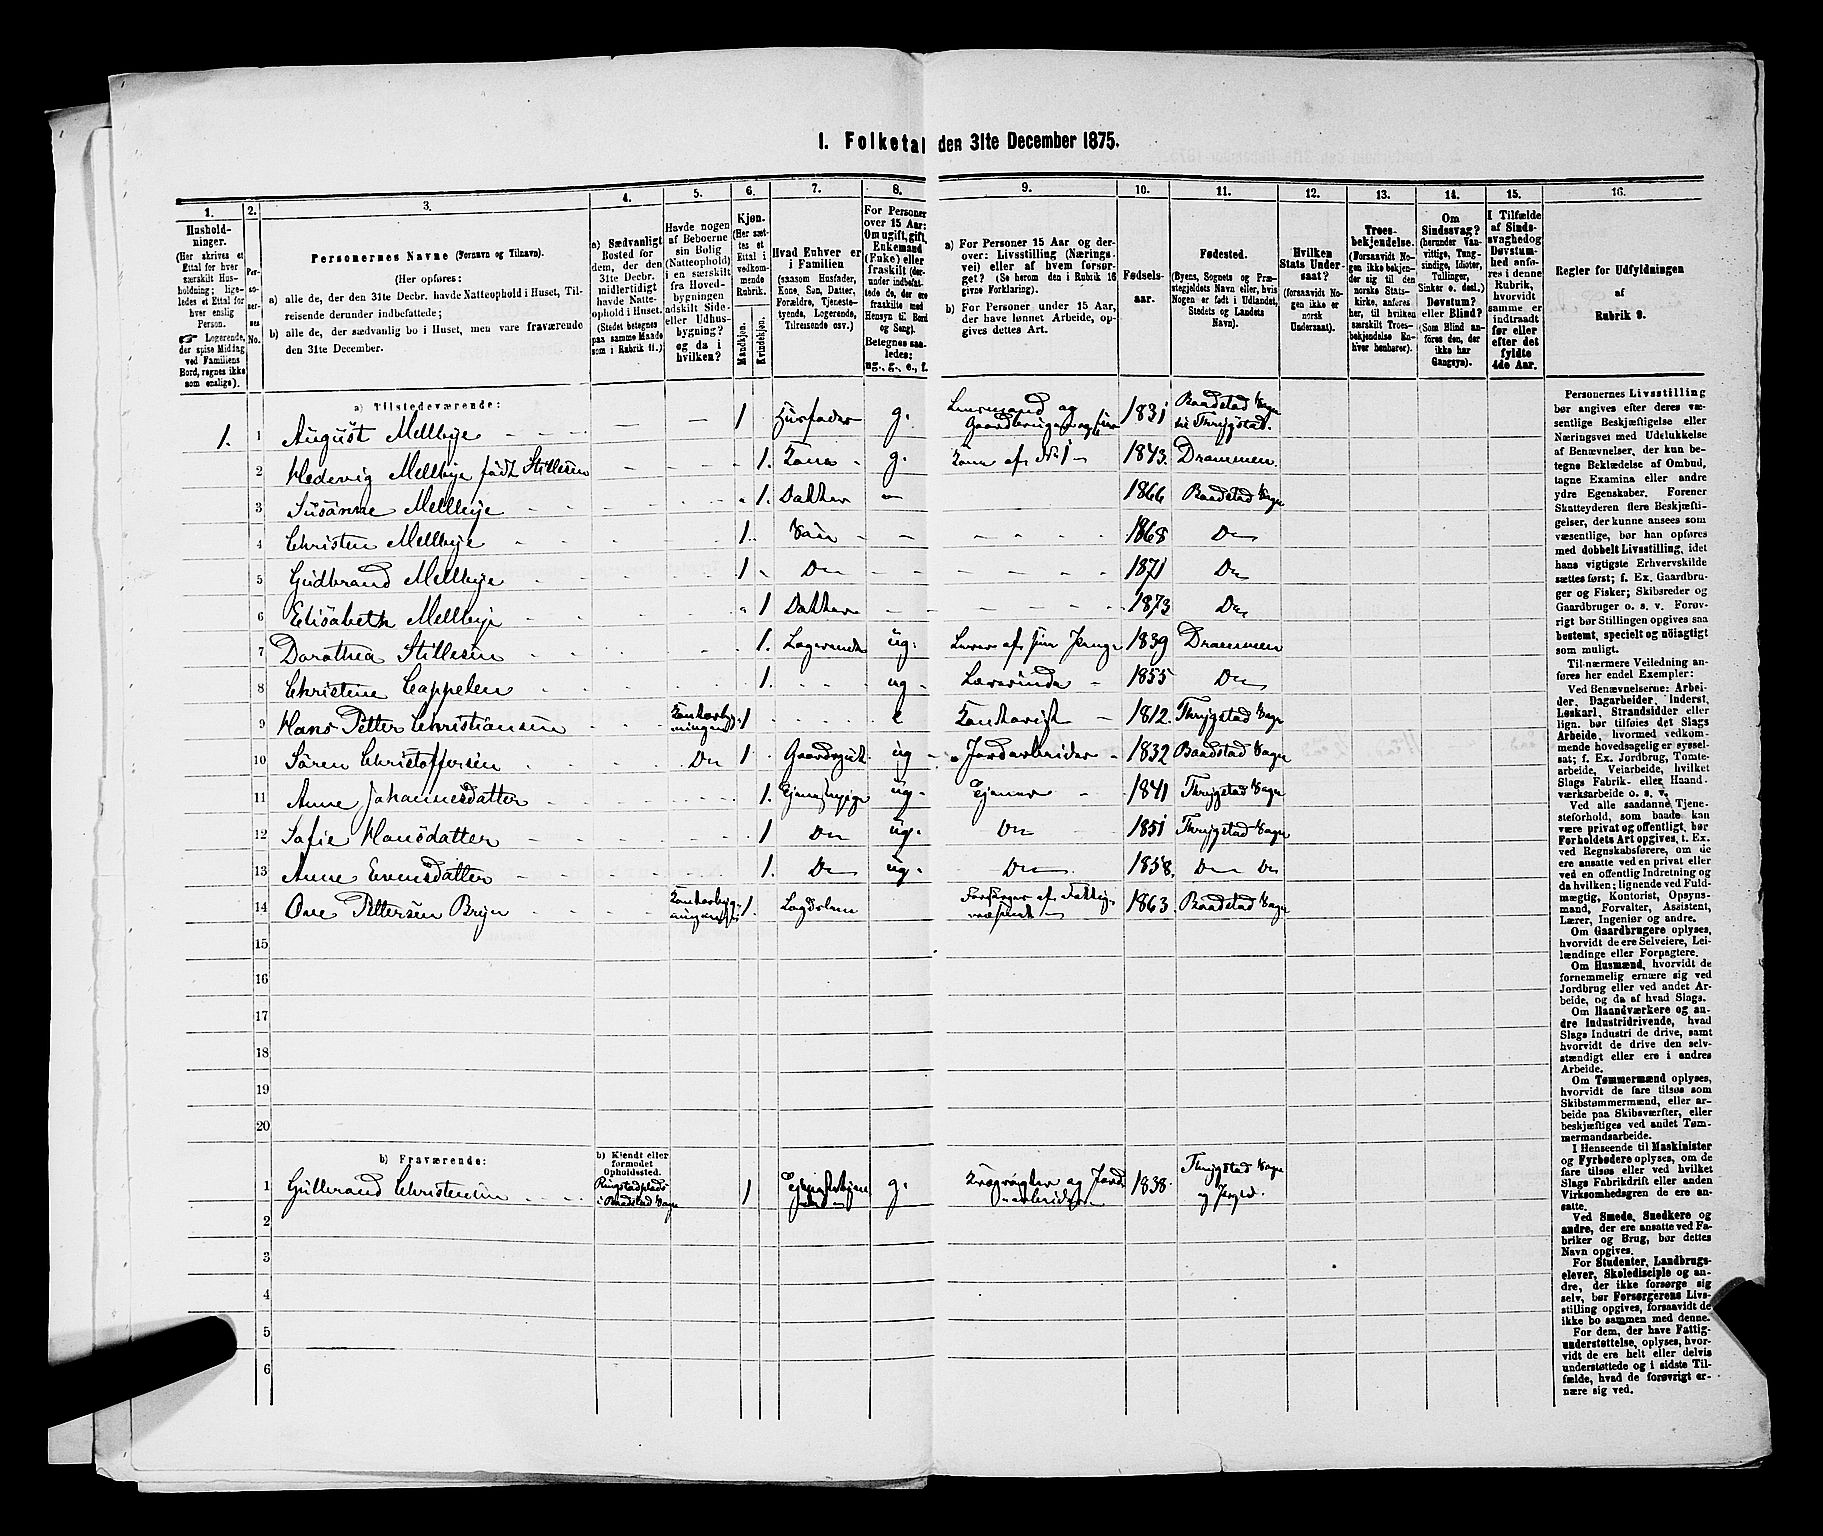 1. Folketal den 31te December 1875.
1. 2. 3. 4. 5. 6. 7. 8. 9. 10. 11. 12. 13. 14. 15. 16.
Hushold-
ninger.
(Her skrives et
Ettal for hver
særskilt Hus-
holdning; lige-
ledes et Ettal for
hver enslig
Person.
☞ Logerende,
der spise Middag
ved Familiens
Bord, regnes ikke
som enslige).
Per-
so-
ner-
nes
No.
Personernes Navne (Fornavn og Tilnavn).
(Her opføres:
a) alle de, der den 31te Decbr. havde Natteophold i Huset, Til-
reisende derunder indbefattede;
b) alle de, der sædvanlig bo i Huset, men vare fraværende
den 31te December.
a) Sædvanligt
Bosted for
dem, der den
31te Decbr.
midlertidigt
havde Natte-
ophold i Huset.
(Stedet betegnes
paa samme Maade
som i Rubrik 11.)
Havde nogen
af Beboerne
sin Bolig
(Natteophold)
i en særskilt
fra Hoved-
bygningen
adskilt Side-
eller Udhus-
bygning?
og da i
hvilken?
Kjøn.
(Her sæt-
tes et
Ettal i
vedkom-
mende
Rubrik.
Mandkjøn.
Kvindekjøn.
Hvad Enhver er
i Familien
(saasom Husfader,
Kone, Søn, Datter,
Forældre, Tjeneste-
tyende, Logerende,
Tilreisende osv.)
For Personer
over 15 Aar:
Om ugift, gift,
Enkemand
(Enke) eller
fraskilt (der-
under indbefat-
tede de, der ere
fraskilte med
Hensyn til Bord
og Seng).
Betegnes saa-
ledes:
ug., g., e., f.
a) For Personer 15 Aar og der-
over: Livsstilling (Nærings-
vei) eller af hvem forsør-
get? (Se herom den i Rubrik 16
givne Forklaring).
b) For Personer under 15 Aar,
der have lønnet Arbeide, op-
gives dettes Art.
Fødsels-
aar.
Fødested.
(Byens, Sognets og Præ-
stegjeldets Navn eller, hvis
Nogen er født i Udlandet,
Stedets og Landets
Navn).
Hvilken
Stats Under-
saat?
(forsaavidt No-
gen ikke er
norsk
Undersaat).
Troes-
bekjendelse.
(Forsaavidt No-
gen ikke bekjen-
der sig til den
norske Stats-
kirke, anføres
her, til hvilken
særskilt Troes-
bekjendelse En-
hver henhører).
Om
Sindssvag?
(herunder Van-
vittige, Tung-
sindige, Idioter,
Tullinger,
Sinker o. desl.)
Døvstum?
eller Blind?
(Som Blind an-
føres den, der
ikke har
Gangsyn).
I Tilfælde
af Sinds-
svaghed og
Døvstum-
hed anfø-
res i denne
Rubrik,
hvorvidt
samme er
indtraadt
før eller
efter det
fyldte
4de Aar.
Regler for Udfyldningen
af
Rubrik 9.
a) Tilstedeværende:
1. 1 August Mellbye — — 1 Husfader g. Lensmand og 1831 Baadstad Sogn
Gaardbruger til Thrygstad.
2 Hedevig Mellbye født Stillesen — — 1. Kone g. Kone af No 1 1843. Drammen.
3 Susanne Mellbye 1. Datter 1866 Baadstad Sogn
4 Christen Mellbye 1. Søn 1868 Do
5 Gudbrand Mellbye 1 Do 1871 Do
6 Elisabeth Mellbye 1 Datter 1873 Do
7 Dorothea Stillesen 1. Logerende ug. Lever af sine Penge 1839 Drammen
8 Christine Cappelen 1. ug. Lærerinde 1855 Do
9 Hans Petter Christiansen 1 e Kontorist 1812. Thrygstad Sogn
10 Søren Christoffersen Do 1 Gaardsgut ug Jordarbeider 1832 Baadstad Sogn
11 Anne Johannesdatter 1. Tjenestepige ug. Tjener 1841 Thrygstad Sogn
12 Sofie Hansdatter 1 Do ug. Do 1851 Thrygstad Sogn
13 Anne Evensdatter 1. Do ug. Do 1858. Do Do
14 Ove Pettersen Bryn 1. Lægdslem Forsørges af Fattig- 1863. Baadstad Sogn
væsenet
15
16
17
18
19
20
b) Fraværende:
b) Kjendt eller
formodet
Opholdssted.
1 Gulbrand Christensen Ringstadplads 1 g. og Jord- 1838. Thrygstad Sogn
i Baadstad Sogn arbeider og Prgjd.
2
3
4
5
6
Personernes Livsstilling
bør angives efter deres væ-
sentlige Beskjæftigelse eller
Næringsvei med Udelukkelse
af Benævnelser, der kun be-
tegne Beklædelse af Ombud,
tagne Examina eller andre
ydre Egenskaber. Forener
Skatteyderen flere Beskjæfti-
gelser, der kunne ansees som
væsentlige, bør han opføres
med dobbelt Livsstilling, idet
hans vigtigste Erhvervskilde
sættes først; f. Ex. Gaardbru-
ger og Fisker; Skibsreder og
Gaardbruger o. s. v. Forøv-
rigt bør Stillingen opgives saa
bestemt, specielt og nöiagtigt
som muligt.
Til nærmere Veiledning an-
føres her endel Exempler:
Ved Benævnelserne: Arbei-
der, Dagarbeider, Inderst,
Løskarl, Strandsidder eller
lign. bør tilføies det Slags
Arbeide, hvormed vedkom-
mende hovedsagelig er syssel-
sat; f. Ex. Jordbrug, Tomte-
arbeide, Veiarbeide, hvilket
Slags Fabrik- eller Haand-
værksarbeide o. s. v.
Ved alle saadanne Tjene-
steforhold, som baade kan
være privat og offentligt, bør
Forholdets Art opgives, t. Ex.
ved Regnskabsførere, om de
ere ansatte ved en privat eller
ved en offentlig Indretning og
da hvilken; lignende ved Fuld-
mægtig, Kontorist, Opsyns-
mand, Forvalter, Assistent,
Lærer, Ingeniør og andre.
Om Gaardbrugere oplyses,
hvorvidt de ere Selveiere, Lei-
lændinge eller Forpagtere.
Om Husmænd, hvorvidt de
fornemmelig ernære sig ved
Jordbrug eller ved andet Ar-
beide, og da af hvad Slags.
Om Haandværkere og an-
dre Industridrivende, hvad
Slags Industri de drive, samt
hvorvidt de drive den selv-
stændigt eller ere i andres
Arbeide.
Om Tømmermænd oplyses,
hvorvidt de fare tilsøs som
Skibstømmermænd, eller ar-
beide paa Skibsværfter, eller
beskjæftiges ved andet Tøm-
mermandsarbeide.
I Henseende til Maskinister
og Fyrbødere oplyses, om de
fare tilsøs eller ved hvilket
Slags Fabrikdrift eller anden
Virksomhedsgren de ere an-
satte.
Ved Smede, Snedkere og
andre, der ere ansatte ved Fa-
briker og Brug, bør dettes
Navn opgives.
For Studenter, Landbrugs-
elever, Skoledisciple og an-
dre, der ikke forsørge sig
selv, bør Forsørgerens Livs-
stilling opgives, forsaavidt de
ikke bo sammen med denne.
For dem, der have Fattig-
understøttelse, oplyses, hvor-
vidt de ere helt eller delvis
understøttede og i sidste Til-
fælde, hvad de forøvrigt er-
nære sig ved.